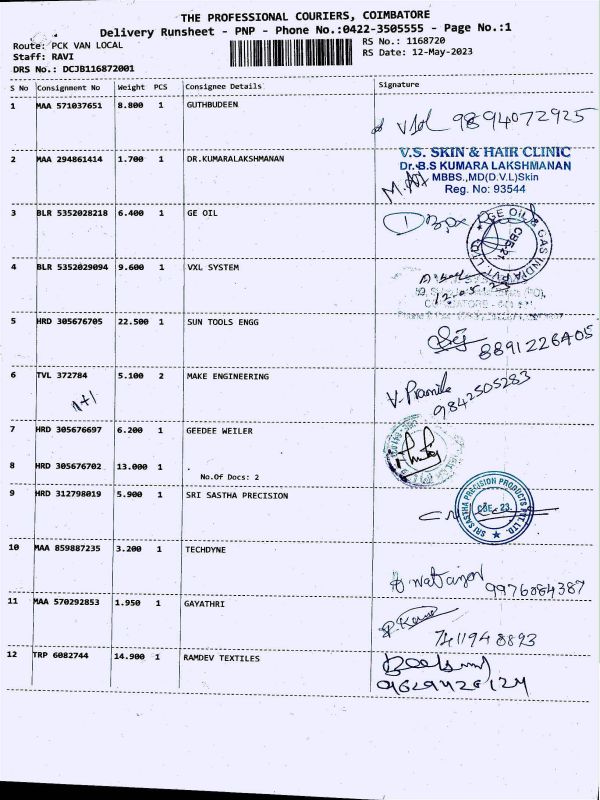 THE PROFESSIONAL COURIERS, COIMBATORE
Delivery Runsheet - PNP - Phone No.:0422-3505555 - Page No.:1
Route: PCK VAN LOCAL
RS No.: 1168720
Staff: RAVI
RS Date: 12-May-2023
DRS No.: DCJB116872001
S No Consignment No Weight PCS Consignee Details Signature
1 MAA 571037651 8.800 1 GUTHBUDEEN
9894072925
2 MAA 294861414 1.700 1 DR.KUMARALAKSHMANAN
V.S. SKIN & HAIR CLINIC
Dr.B.S KUMARA LAKSHMANAN
MBBS.,MD(D.V.L)Skin
Reg. No: 93544
3 BLR 5352028218 6.400 1 GE OIL
GE OIL & GAS INDIA PVT LTD
CBE-21.
4 BLR 5352029094 9.600 1 VXL SYSTEM
5 HRD 305676705 22.500 1 SUN TOOLS ENGG
8891226405
6 TVL 372784 5.100 2 MAKE ENGINEERING
1+1
V. Pramila
9842505283
7 HRD 305676697 6.200 1 GEEDEE WEILER
8 HRD 305676702 13.000 1
No.Of Docs: 2
9 HRD 312798019 5.900 1 SRI SASTHA PRECISION
SRI SASTHA PRECISION PRODUCTS PVT LTD.
CBE-23.
10 MAA 859887235 3.200 1 TECHDYNE
9976084387
11 MAA 570292853 1.950 1 GAYATHRI
7411948893
12 TRP 6082744 14.900 1 RAMDEV TEXTILES